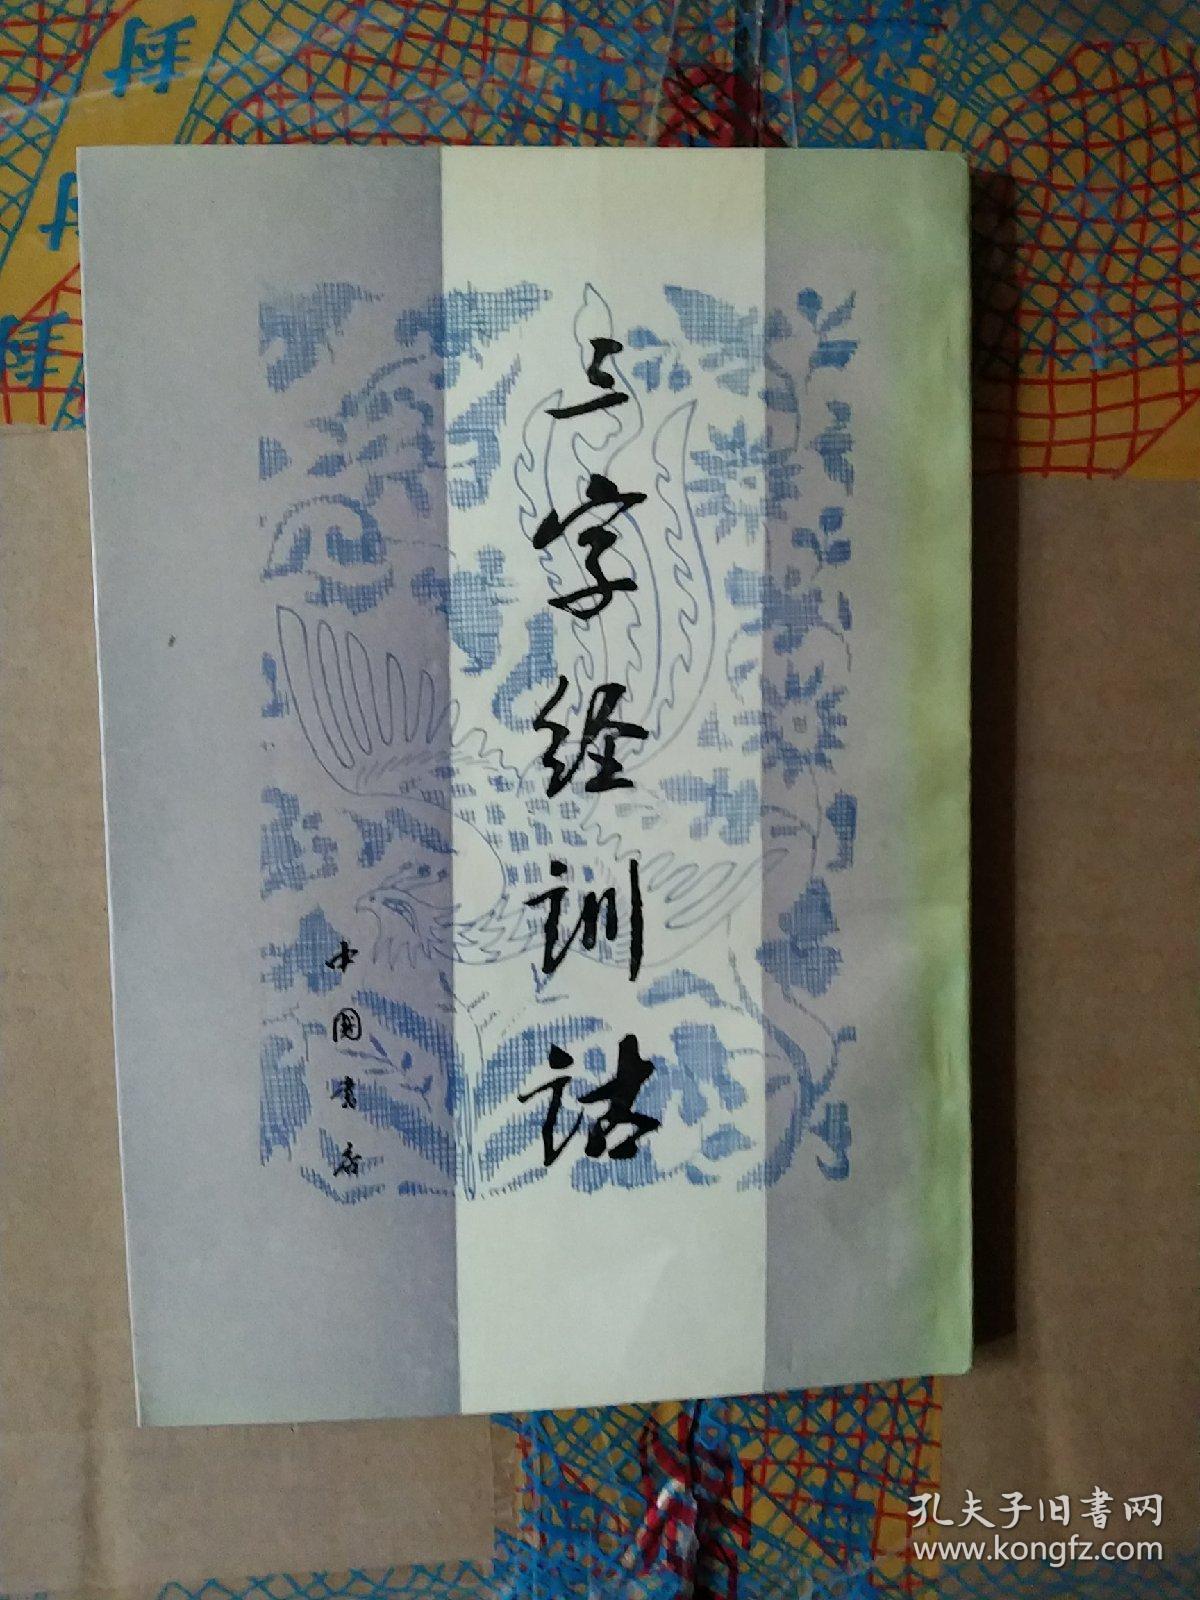 三字经训诂
中国书店
封
封
封
孔夫子旧書网
www.kongfz.com